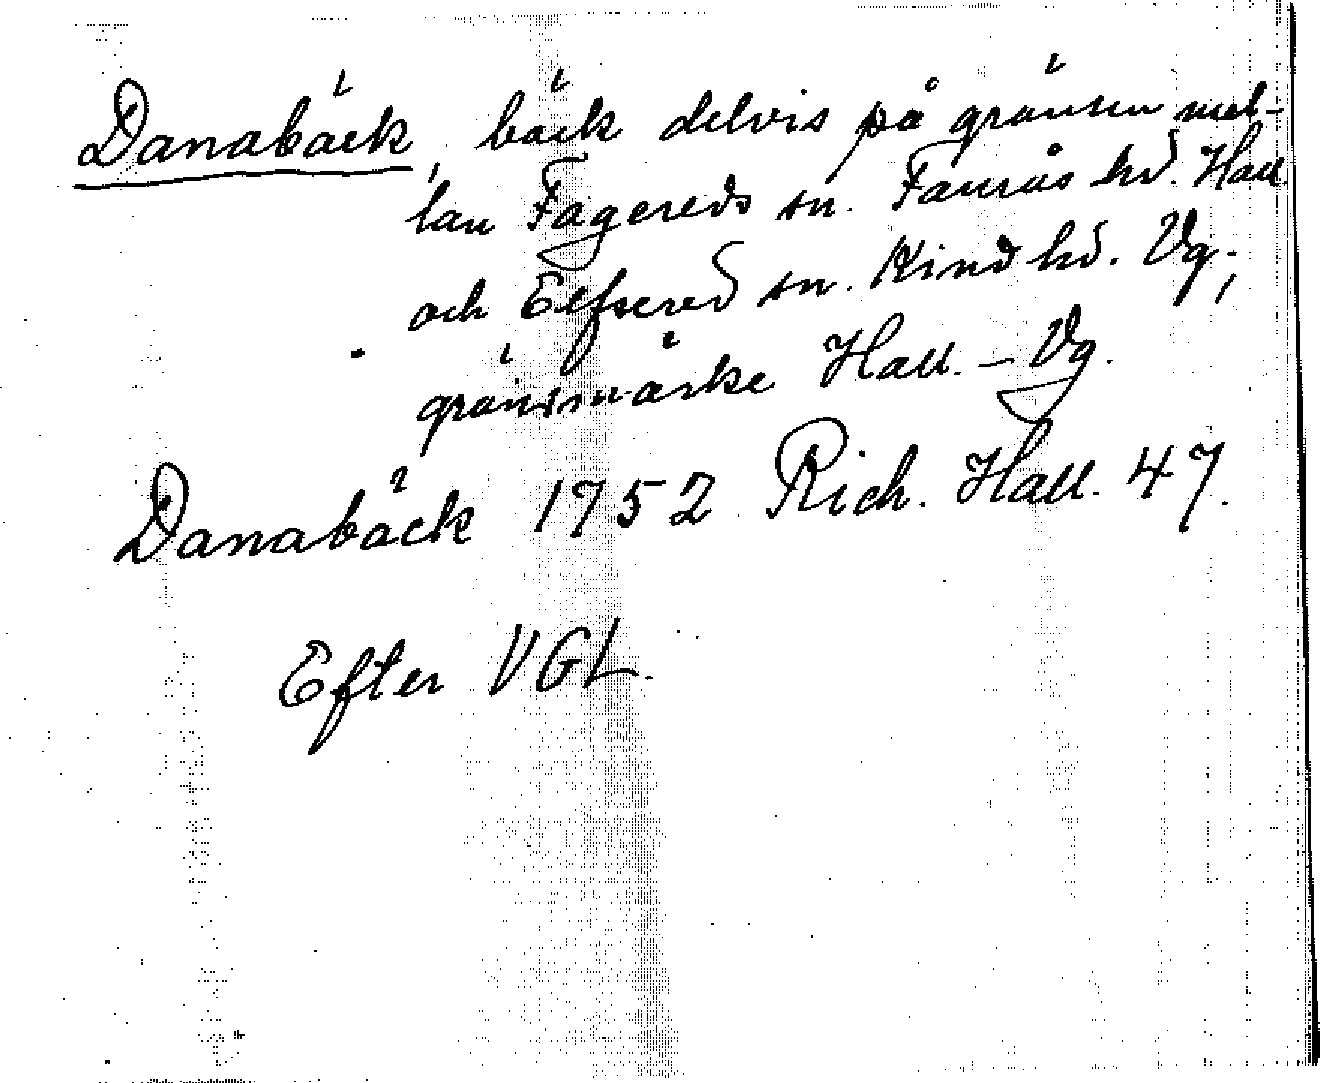 Danabäck, bäck delvis på gränsen mel-
lan Fagereds sn. Faurås hd. Hall.
och Elfsered sn. Kind hd. Vg.,
gränsmärke Hall. – Vg.
Danabäck 1752 Rich. Hall. 47.
Efter VGL.